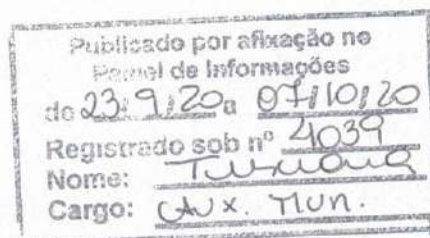 Publicado por afixação no
Painel de Informações
de 23/9/20 a 07/10/20
Registrado sob nº 4039
Nome:
Cargo: Aux. Mun.